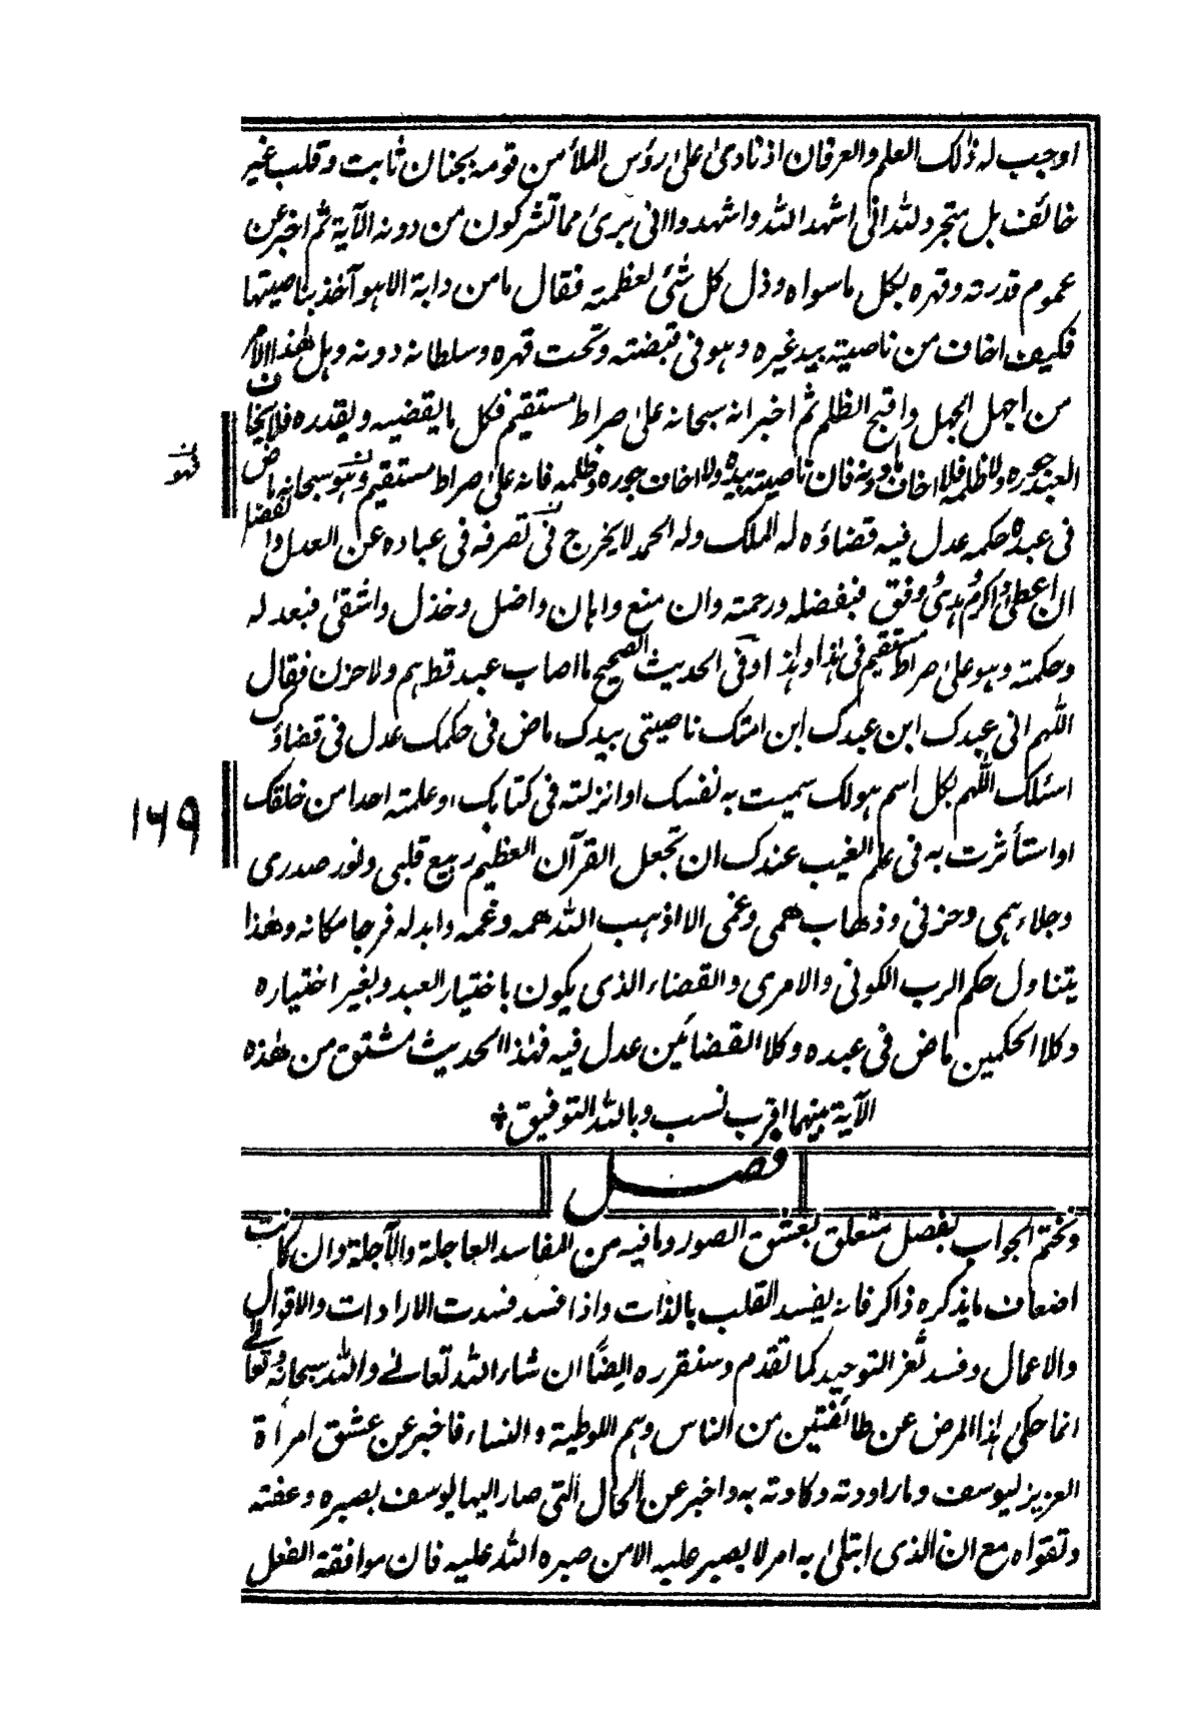 اوجب له ذلك العلم والعرفان اذ نادى على رؤس الملأ من قومه بجنان ثابت وقلب غير
خائف بل متجرد لله انى اشهد الله واشهدوا انى برئ مما تشركون من دونه الآية ثم اخبر عن
عموم قدرته وقهره لكل ما سواه وذل كل شئ لعظمته فقال ما من دابة الا هو آخذ بناصيتها
فكيف اخاف من ناصيته بيد غيره وهو فى قبضته وتحت قهره وسلطانه دونه وهل هذا الا
من اجهل الجهل واقبح الظلم ثم اخبر انه سبحانه على صراط مستقيم فكل ما يقضيه ويقدره فلا يخاف
العبد جوره ولا ظلمه فلا اخاف ما دونه فان ناصيته بيده ولا اخاف جوره وظلمه فانه على صراط مستقيم فهو سبحانه ماض
فى عبده حكمه عدل فيه قضاؤه له الملك وله الحمد لا يخرج فى تصرفه فى عباده عن العدل والفضل
ان اعطى واكرم وهدى ووفق فبفضله ورحمته وان منع واهان واضل وخذل واشقى فبعدله
وحكمته وهو على صراط مستقيم فى هذا وهذا وفى الحديث الصحيح ما اصاب عبد قط هم ولا حزن فقال
اللهم انى عبدك ابن عبدك ابن امتك ناصيتى بيدك ماض فى حكمك عدل فى قضاؤك
اسئلك اللهم بكل اسم هو لك سميت به نفسك او انزلته فى كتابك او علمته احدا من خلقك
او استأثرت به فى علم الغيب عندك ان تجعل القرآن العظيم ربيع قلبى ونور صدرى
وجلاء همى وحزنى وذهاب همى وغمى الا اذهب الله همه وغمه وابدله فرجا مكانه وهذا
يتناول حكم الرب الكونى والامرى والقضاء الذى يكون باختيار العبد وبغير اختياره
وكلا الحكمين ماض فى عبده وكلا القضائين عدل فيه فهذا الحديث مشتق من هذه
الآية بينهما اقرب نسب وبالله التوفيق
فصل
ونختم الجواب بفصل متعلق بعشق الصور وما فيه من المفاسد العاجلة والآجلة وان كانت
اضعاف ما يذكره ذاكر فانه يفسد القلب بالذات واذا فسد فسدت الارادات والاقوال
والاعمال وفسد ثغر التوحيد كما تقدم وسنقرره ايضا ان شاء الله تعالى والله سبحانه وتعالى
انما حكى هذا المرض عن طائفتين من الناس وهم اللوطية والنساء فاخبر عن عشق امرأة
العزيز ليوسف وما راودته وكادته به واخبر عن الحال التى صار اليها يوسف بصبره وعفته
وتقواه مع ان الذى ابتلى به امر لا يصبر عليه الا من صبره الله عليه فان موافقة الفعل
فهو
١٦٩